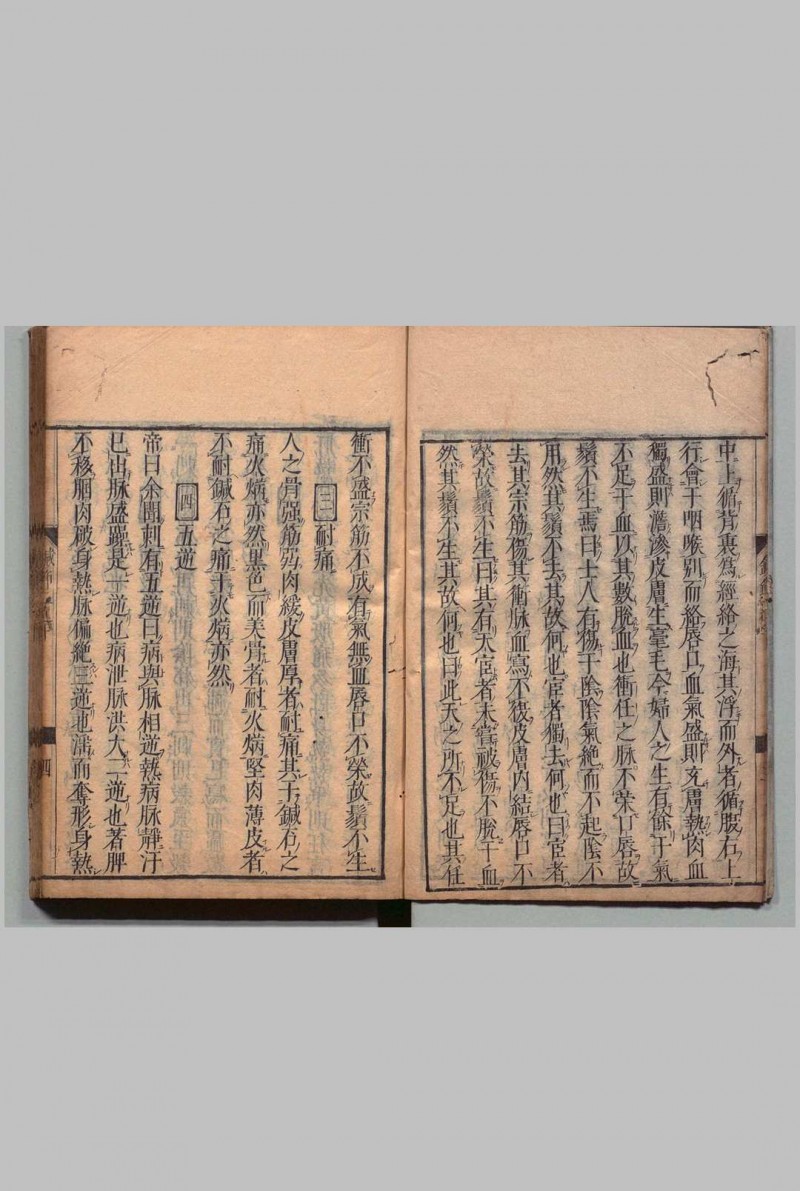 中上循背裏爲經絡之海其浮而外者循腹右上
行會于咽喉別而絡唇口血氣盛則充膚熱肉血
獨盛則澹滲皮膚生毫毛今婦人之生有餘于氣
不足于血以其數脫血也衝任之脉不榮口唇故
鬚不生焉曰士人有傷于陰陰氣絶而不起陰不
用然其鬚不去其故何也宦者獨去何也曰宦者
去其宗筋傷其衝脉血寫不復皮膚内結唇口不
榮故鬚不生曰其有天宦者未嘗被傷不脫于血
然其鬚不生其故何也曰此天之所不足也其任
衝不盛宗筋不成有氣無血唇口不榮故鬚不生
三耐痛
人之骨强筋弱肉緩皮膚厚者耐痛其于鍼石之
痛火焫亦然黒色而美骨者耐火焫堅肉薄皮者
不耐鍼石之痛于火焫亦然
四五逆
帝曰余聞刺有五逆曰病與脉相逆熱病脉靜汗
已出脉盛躁是一逆也病泄脉洪大二逆也著脾
不移䐃肉破身熱脉偏絶三逆也滛而奪形身熱
四